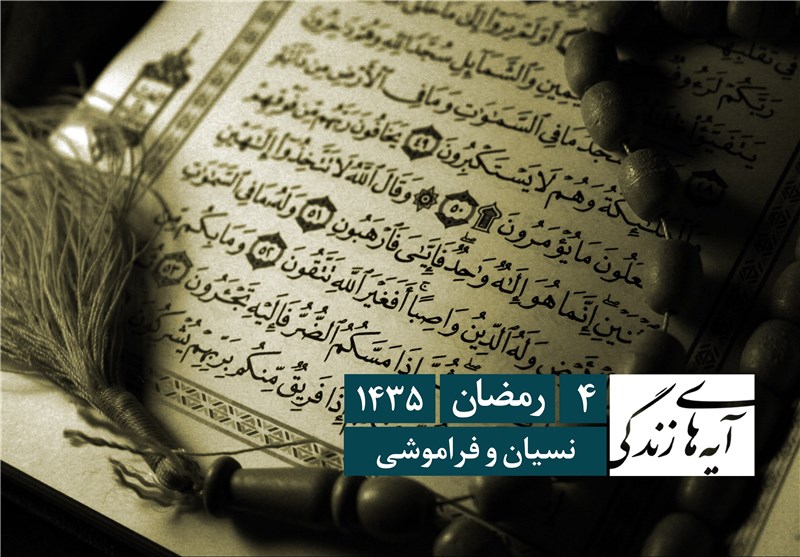 أَوَلَمْ يَرَوْا۟ إِلَىٰ مَا خَلَقَ
وَٱلشَّمَآئِلِ سُجَّدًا لِّلَّهِ وَهُمْ دَٰخِرُونَ
مَا فِى ٱلسَّمَٰوَٰتِ وَمَا فِى ٱلْأَرْضِ مِن دَآبَّةٍ
وَٱلْمَلَٰٓئِكَةُ وَهُمْ لَا يَسْتَكْبِرُونَ ٤٩ يَخَافُونَ رَبَّهُم مِّن فَوْقِهِمْ
وَيَفْعَلُونَ مَا يُؤْمَرُونَ ۩ ٥٠ ۞ وَقَالَ ٱللَّهُ لَا تَتَّخِذُوٓا۟ إِلَٰهَيْنِ
ٱثْنَيْنِ إِنَّمَا هُوَ إِلَٰهٌ وَٰحِدٌ فَإِيَّٰىَ فَٱرْهَبُونِ ٥١ وَلَهُۥ مَا فِى ٱلسَّمَٰوَٰتِ
وَٱلْأَرْضِ وَلَهُ ٱلدِّينُ وَاصِبًا أَفَغَيْرَ ٱللَّهِ تَتَّقُونَ ٥٢ وَمَا بِكُم مِّن
ثُمَّ إِذَا مَسَّكُمُ ٱلضُّرُّ فَإِلَيْهِ تَجْـَٔرُونَ ٥٣ ثُمَّ
إِذَا فَرِيقٌ مِّنكُم بِرَبِّهِمْ يُشْرِكُونَ
آیه های زندگی
۴ رمضان ۱۴۳۵
نسیان و فراموشی